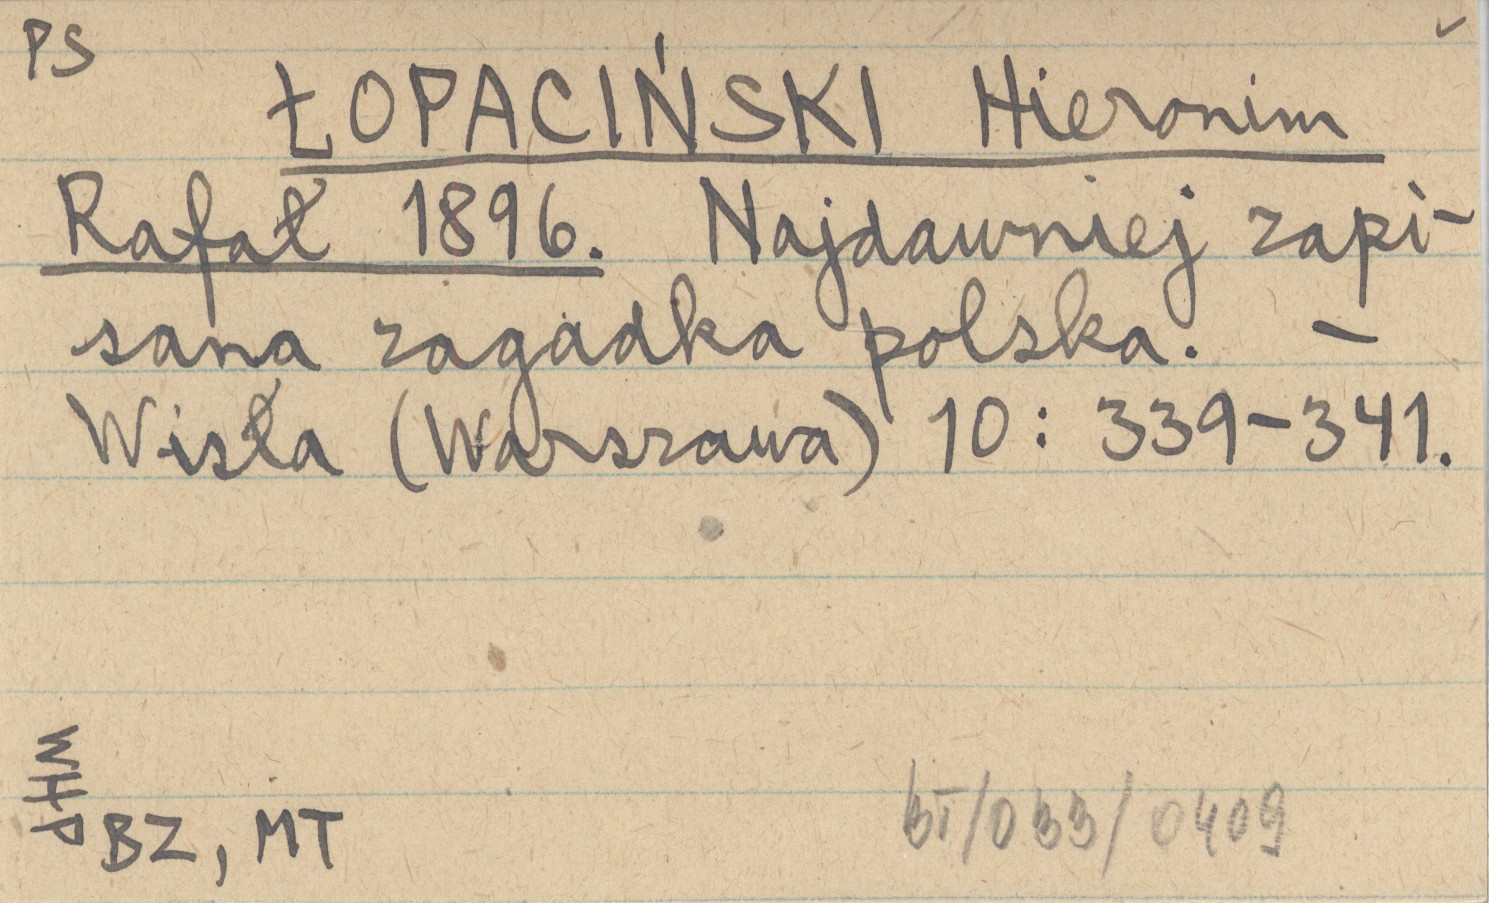 PS
ŁOPACIŃSKI Hieronim
Rafał 1896. Najdawniej zapi-
sana zagadka polska. –
Wisła (Warszawa) 10: 339-341.
WHP
BZ, MT
BI/033/0409